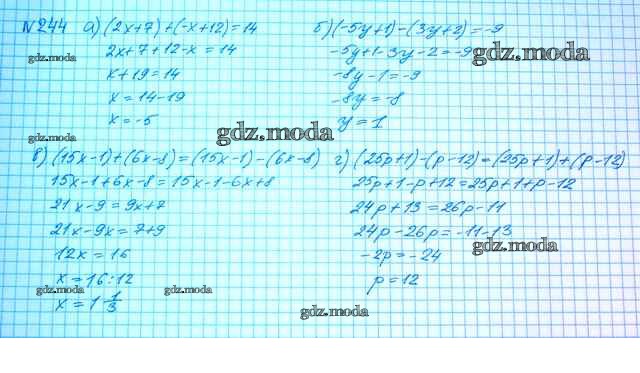 №244 а) (2x+7)+(-x+12)=14
2x+7+12-x=14
x+19=14
x=14-19
x=-5
б) (-5y+1)-(3y+2)=-9
-5y+1-3y-2=-9
-8y-1=-9
-8y=-8
y=1
в) (15x-1)+(6x-8)=(15x-1)-(6x-8)
15x-1+6x-8=15x-1-6x+8
21x-9=9x+7
21x-9x=7+9
12x=16
x=16:12
x=1 1/3
г) (25p+1)-(p-12)=(25p+1)+(p-12)
25p+1-p+12=25p+1+p-12
24p+13=26p-11
24p-26p=-11-13
-2p=-24
p=12
gdz.moda
gdz.moda
gdz.moda
gdz.moda
gdz.moda
gdz.moda
gdz.moda
gdz.moda